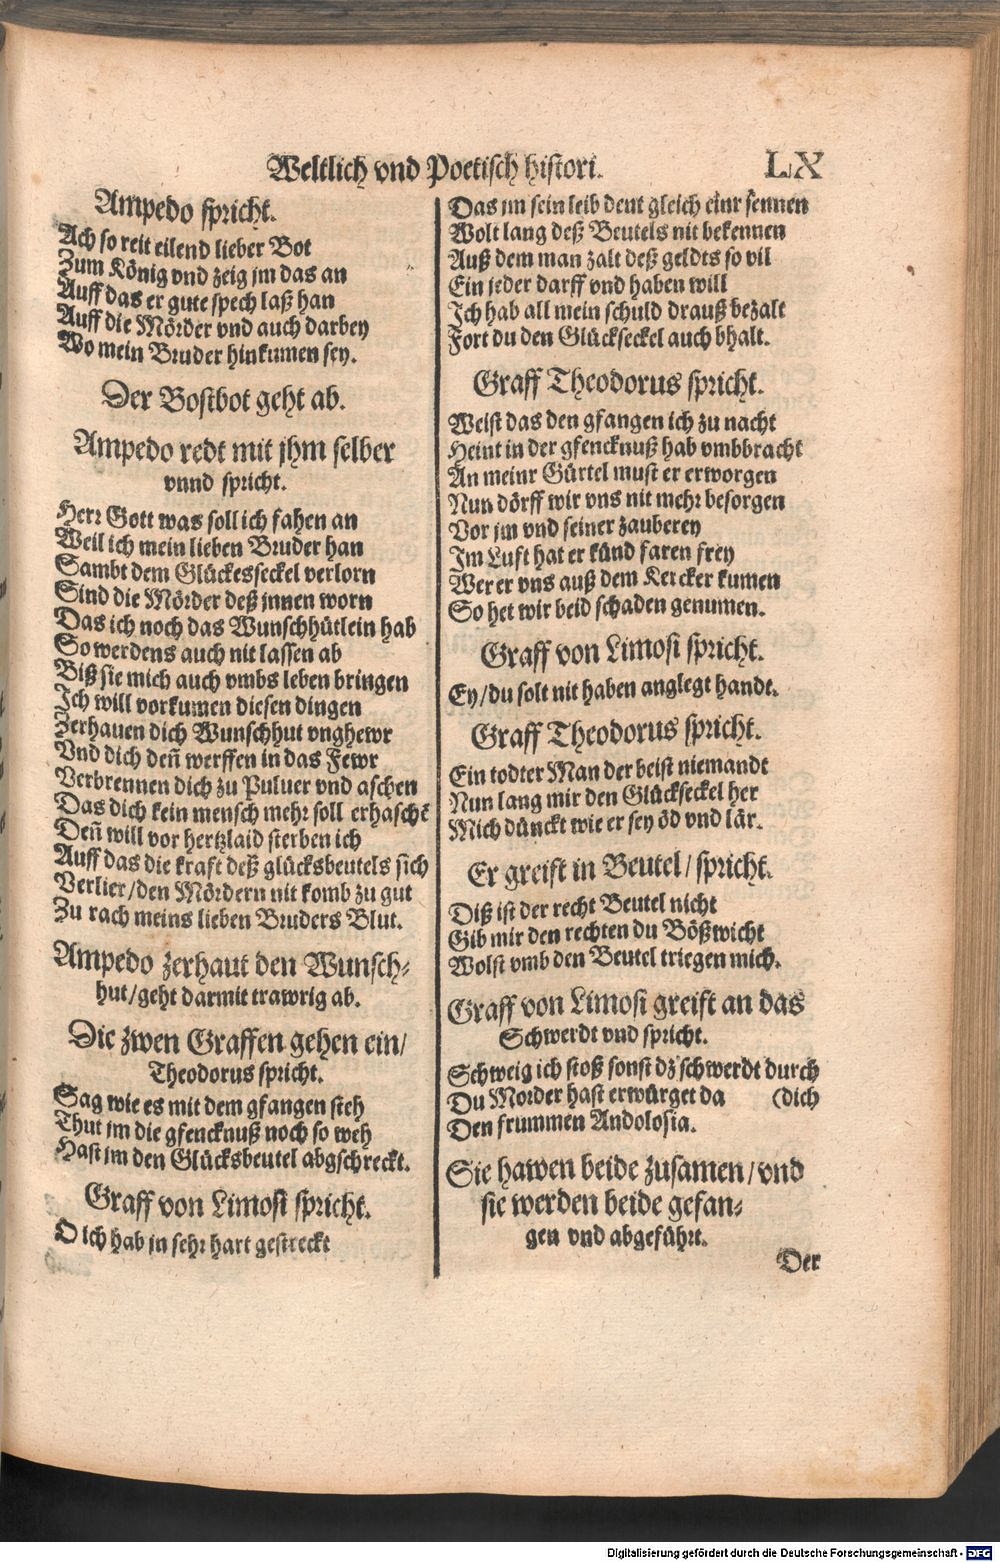 Weltlich vnd Poetisch histori.
LX
Ampedo spricht.
Ach so reit eilend lieber Bot
Zum König vnd zeig jm das an
Auff das er gute spech laß han
Auff die Mörder vnd auch darbey
Wo mein Bruder hinkumen sey.
Der Bostbot geht ab.
Ampedo redt mit jhm selber
vnnd spricht.
Herr Gott was soll ich fahen an
Weil ich mein lieben Bruder han
Sambt dem Glückesseckel verlorn
Sind die Mörder deß jnnen worn
Das ich noch das Wunschhütlein hab
So werdens auch nit lassen ab
Biß sie mich auch vmbs leben bringen
Ich will vorkumen diesen dingen
Zerhauen dich Wunschhut vnghewr
Vnd dich deñ werffen in das Fewr
Verbrennen dich zu Puluer vnd aschen
Das dich kein mensch mehr soll erhaschē
Deñ will vor hertzlaid sterben ich
Auff das die kraft deß glücksbeutels sich
Verlier/den Mördern nit komb zu gut
Zu rach meins lieben Bruders Blut.
Ampedo zerhaut den Wunsch-
hut/geht darmit trawrig ab.
Die zwen Graffen gehen ein/
Theodorus spricht.
Sag wie es mit dem gfangen steh
Thut jm die gfencknuß noch so weh
Hast jm den Glücksbeutel abgschreckt.
Graff von Limosi spricht.
O ich hab jn sehr hart gestreckt
Das jm sein leib deut gleich einr sennen
Wolt lang deß Beutels nit bekennen
Auß dem man zalt deß geldts so vil
Ein jeder darff vnd haben will
Ich hab all mein schuld drauß bezalt
Fort du den Glückseckel auch bhalt.
Graff Theodorus spricht.
Weist das den gfangen ich zu nacht
Heint in der gfencknuß hab vmbbracht
An meinr Gürtel must er erworgen
Nun dörff wir vns nit mehr besorgen
Vor jm vnd seiner zauberey
Im Luft hat er künd faren frey
Wer er vns auß dem Kercker kumen
So het wir beid schaden genumen.
Graff von Limosi spricht.
Ey/du solt nit haben anglegt handt.
Graff Theodorus spricht.
Ein todter Man der beist niemandt
Nun lang mir den Glückseckel her
Mich dünckt wie er sey öd vnd lär.
Er greift in Beutel/ spricht.
Diß ist der recht Beutel nicht
Gib mir den rechten du Bößwicht
Wolst vmb den Beutel triegen mich.
Graff von Limosi greift an das
Schwerdt vnd spricht.
Schweig ich stoß sonst dz schwerdt durch
Du Morder hast erwürget da (dich
Den frummen Andolosia.
Sie hawen beide zusamen/vnd
sie werden beide gefan-
gen vnd abgeführt.
Der
Digitalisierung gefördert durch die Deutsche Forschungsgemeinschaft - DFG